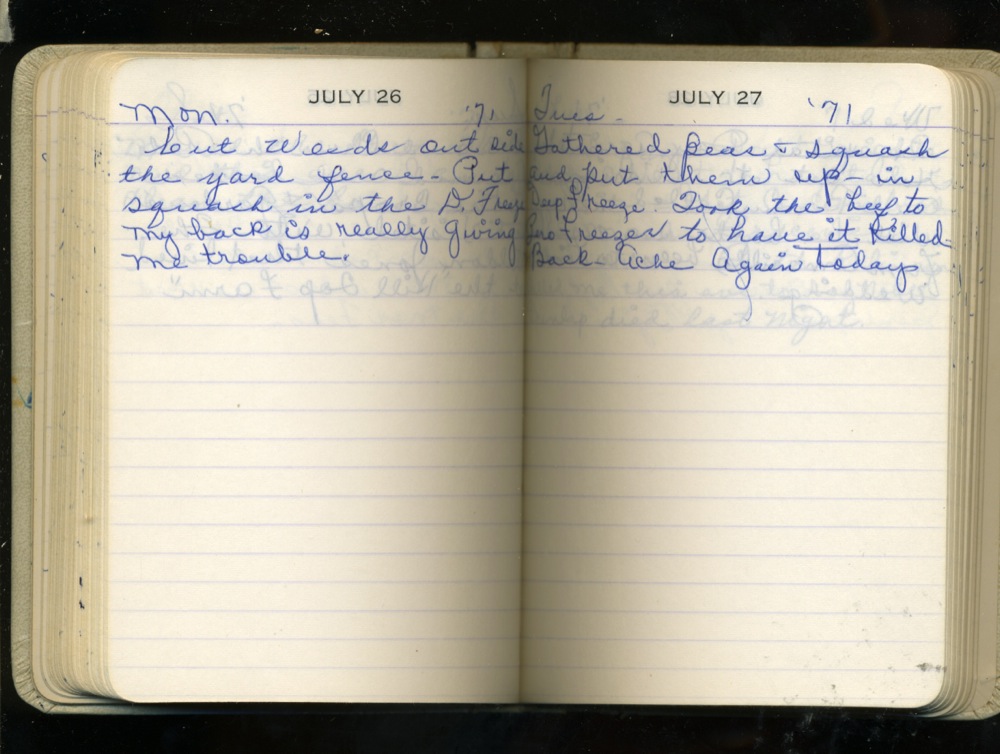 JULY 26
Mon. '71
Cut weeds out side
the yard fence - Put
squash in the D. Freeze
My back is really giving
me trouble.
JULY 27
Tues. '71
Gathered peas & squash
and put them up - in
Deep Freeze. Took the beef to
Freezer to have it killed -
Back ache Again today